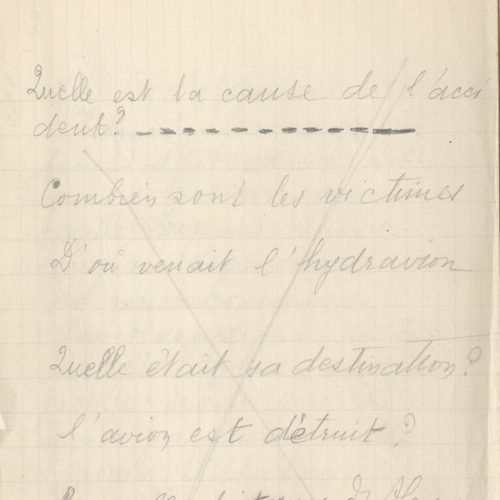 Quelle est la cause de l'acci
dent?
Combien sont les victimes
D'où venait l'hydravion
Quelle était sa destination?
l'avion est détruit?